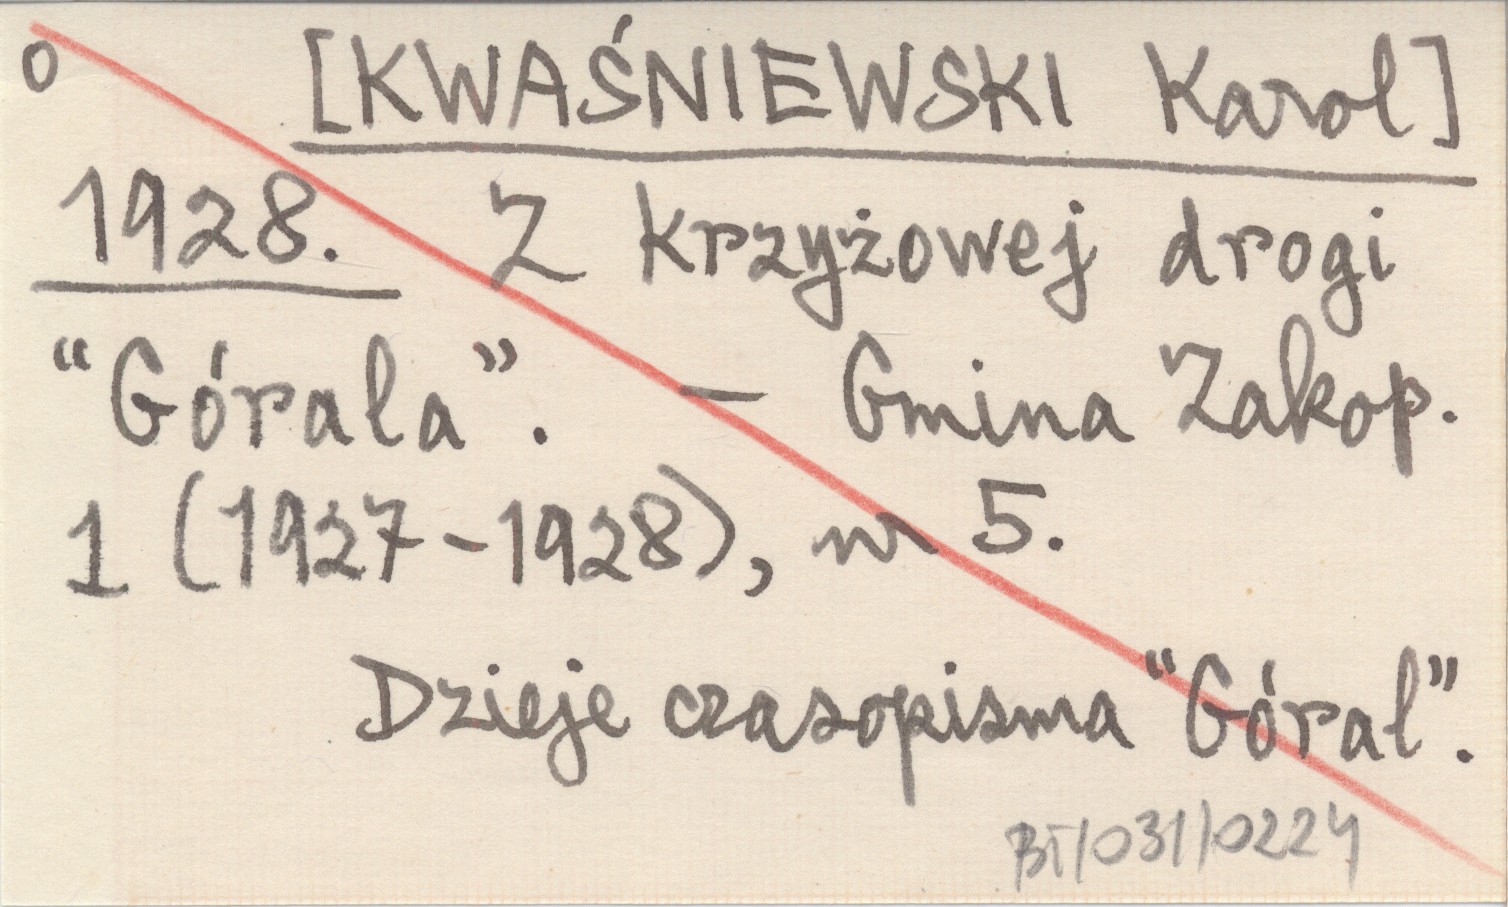 o [KWAŚNIEWSKI Karol]
1928. Z krzyżowej drogi
“Górala”. — Gmina Zakop.
1 (1927-1928), nr 5.
Dzieje czasopisma “Góral”.
BT/031/0224